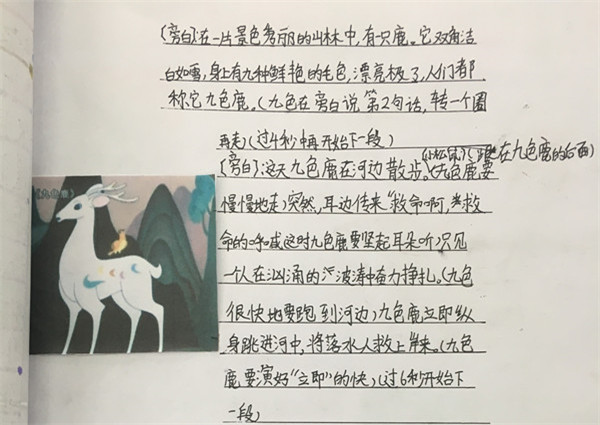 (旁白):在一片景色秀丽的山林中,有一只鹿。它双角洁
白如雪,身上有九种鲜艳的毛色,漂亮极了,人们都
称它九色鹿。(九色在旁白说第2句话,转一个圈
再走)(过4秒中再开始下一段)
(旁白):这天九色鹿在河边散步。(小松鼠)(跟在九色鹿的后面)(九色鹿要
慢慢地走)突然,耳边传来“救命啊,救
命的呼喊这时九色鹿要坚起耳朵听)只见
一个人在汹涌的波涛中奋力挣扎。(九色
很快地要跑到河边)九色鹿立即纵
身跳进河中,将落水人救上岸来。(九色
鹿要演好“立即”的快)(过6秒开始下
一段)
(九色鹿)